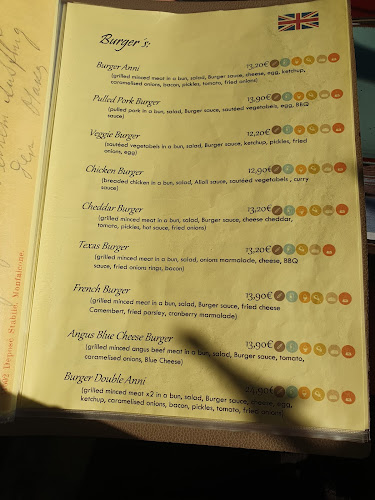 Burger's:
Burger Anni 13,20€
(grilled minced meat in a bun, salad, Burger sauce, cheese, egg, ketchup,
caramelised onions, bacon, pickles, tomato, fried onions)
Pulled Pork Burger 13,90€
(pulled pork in a bun, salad, Burger sauce, sautéed vegetabels, egg, BBQ
sauce)
Veggie Burger 12,20€
(sautéed vegetabels in a bun, salad, Burger sauce, ketchup, pickles, fried
onions, egg)
Chicken Burger 12,90€
(breaded chicken in a bun, salad, Alioli sauce, sautéed vegetabels, curry
sauce)
Cheddar Burger 13,20€
(grilled minced meat in a bun, salad, Burger sauce, cheese cheddar,
tomato, pickles, hot sauce, fried onions)
Texas Burger 13,20€
(grilled minced meat in a bun, salad, onions marmalade, cheese, BBQ
sauce, fried onions rings, bacon)
French Burger 13,90€
(grilled minced meat in a bun, salad, Burger sauce, fried cheese
Camembert, fried parsley, cranberry marmalade)
Angus Blue Cheese Burger 13,90€
(grilled minced angus beef meat in a bun, salad, Burger sauce, tomato,
caramelised onions, Blue Cheese)
Burger Double Anni 23,90€
(grilled minced meat x2 in a bun, salad, Burger sauce, cheese, egg,
ketchup, caramelised onions, bacon, pickles, tomato, fried onions)
Deposé Stabilé. Monfalcone.